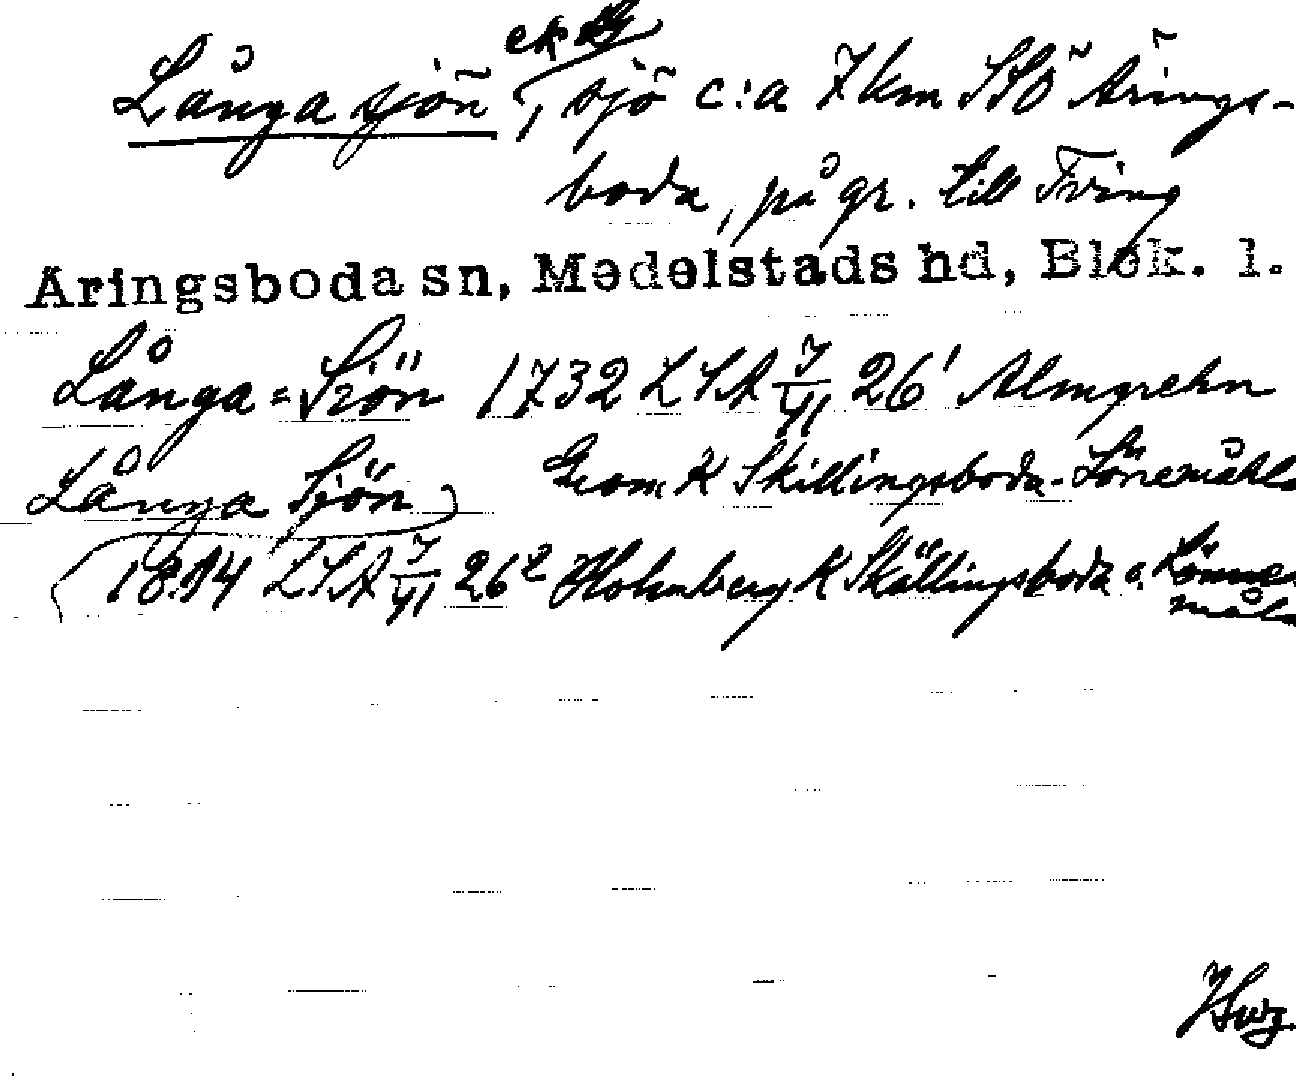 ek bl
Långa sjön, sjö c:a 7 km SSÖ Ärings-
boda, på gr. till Tving
Äringsboda sn, Medelstads hd, Blek. l.
Långa=Siön 1732 LSA J/VI 26¹ Almgrehn
Långa Sjön Geom K Skillingsboda-Lönemåhla
1814 LSA J/VI 26² Holmberg K Skällingsboda o. Lönne-
måla